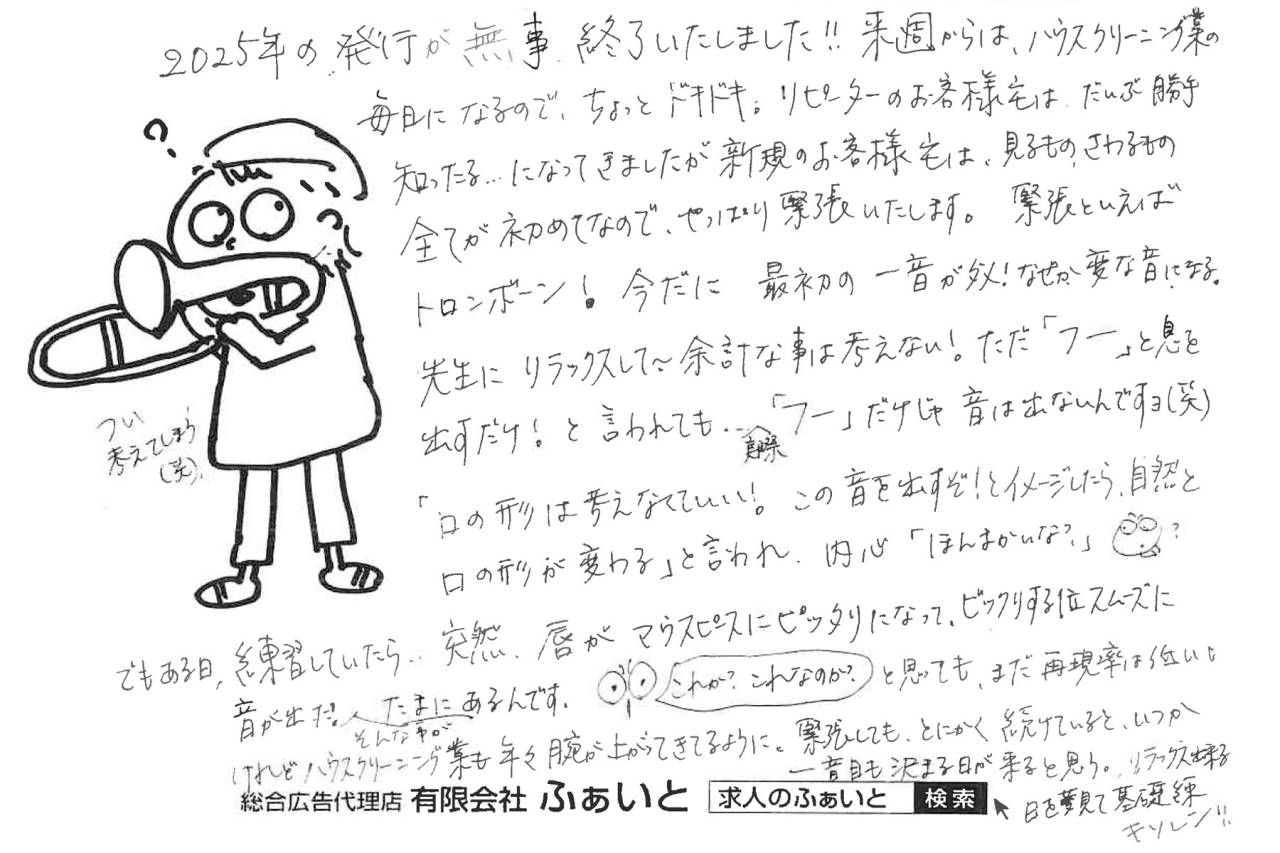 2025年の発行が無事終了いたしました!! 来週からは、ハウスクリーニング業の
毎日になるので、ちょっとドキドキ。リピーターのお客様宅は、だいぶ勝手
知ったる…になってきましたが新規のお客様宅は、見るもの、さわるもの
全てが初めてなので、やっぱり緊張いたします。 緊張といえば
トロンボーン! 今だに 最初の一音が必! なぜか変な音になる。
先生に リラックスして〜余計な事は考えない! ただ「フー」と息を
出すだけ! と言われても…「フー」だけじゃ音は出ないんですョ(笑)
実際
「口の形は考えなくていい! この音を出すぞ!とイメージしたら、自然と
口の形が変わる」と言われ、内心「ほんまかいな?」
?
でもある日、練習していたら… 突然、唇がマウスピースにピッタリになって、ビックリする位スムーズに
音が出た。そんな事がたまにあるんです。
これか? これなのか?
と思っても、まだ再現率は低いも
けれどハウスクリーニング業も年々腕が上がってきてるように。緊張しても、とにかく続けていると、いつか
一音目も決まる日が来ると思う。リラックス出来る
日を夢見て基礎練
キソレン!!
?
つい
考えてしまう
(笑)
総合広告代理店 有限会社 ふぁいと 求人のふぁいと 検索